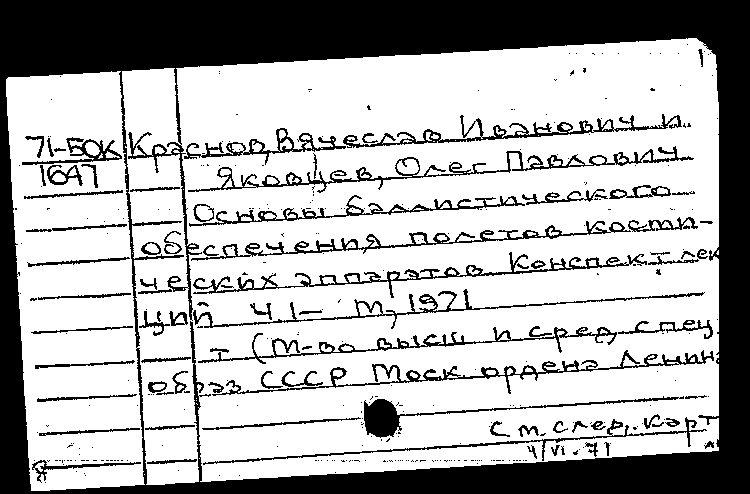 71-БОК Краснов, Вячеслав Иванович и
1647 Яковцев, Олег Павлович
Основы баллистического
обеспечения полетов косми-
ческих аппаратов Конспект лек
ций Ч. I- М, 1971
т (М-во высш и сред, спец
образ СССР Моск ордена Ленина
См. след. карт
4/VI-71